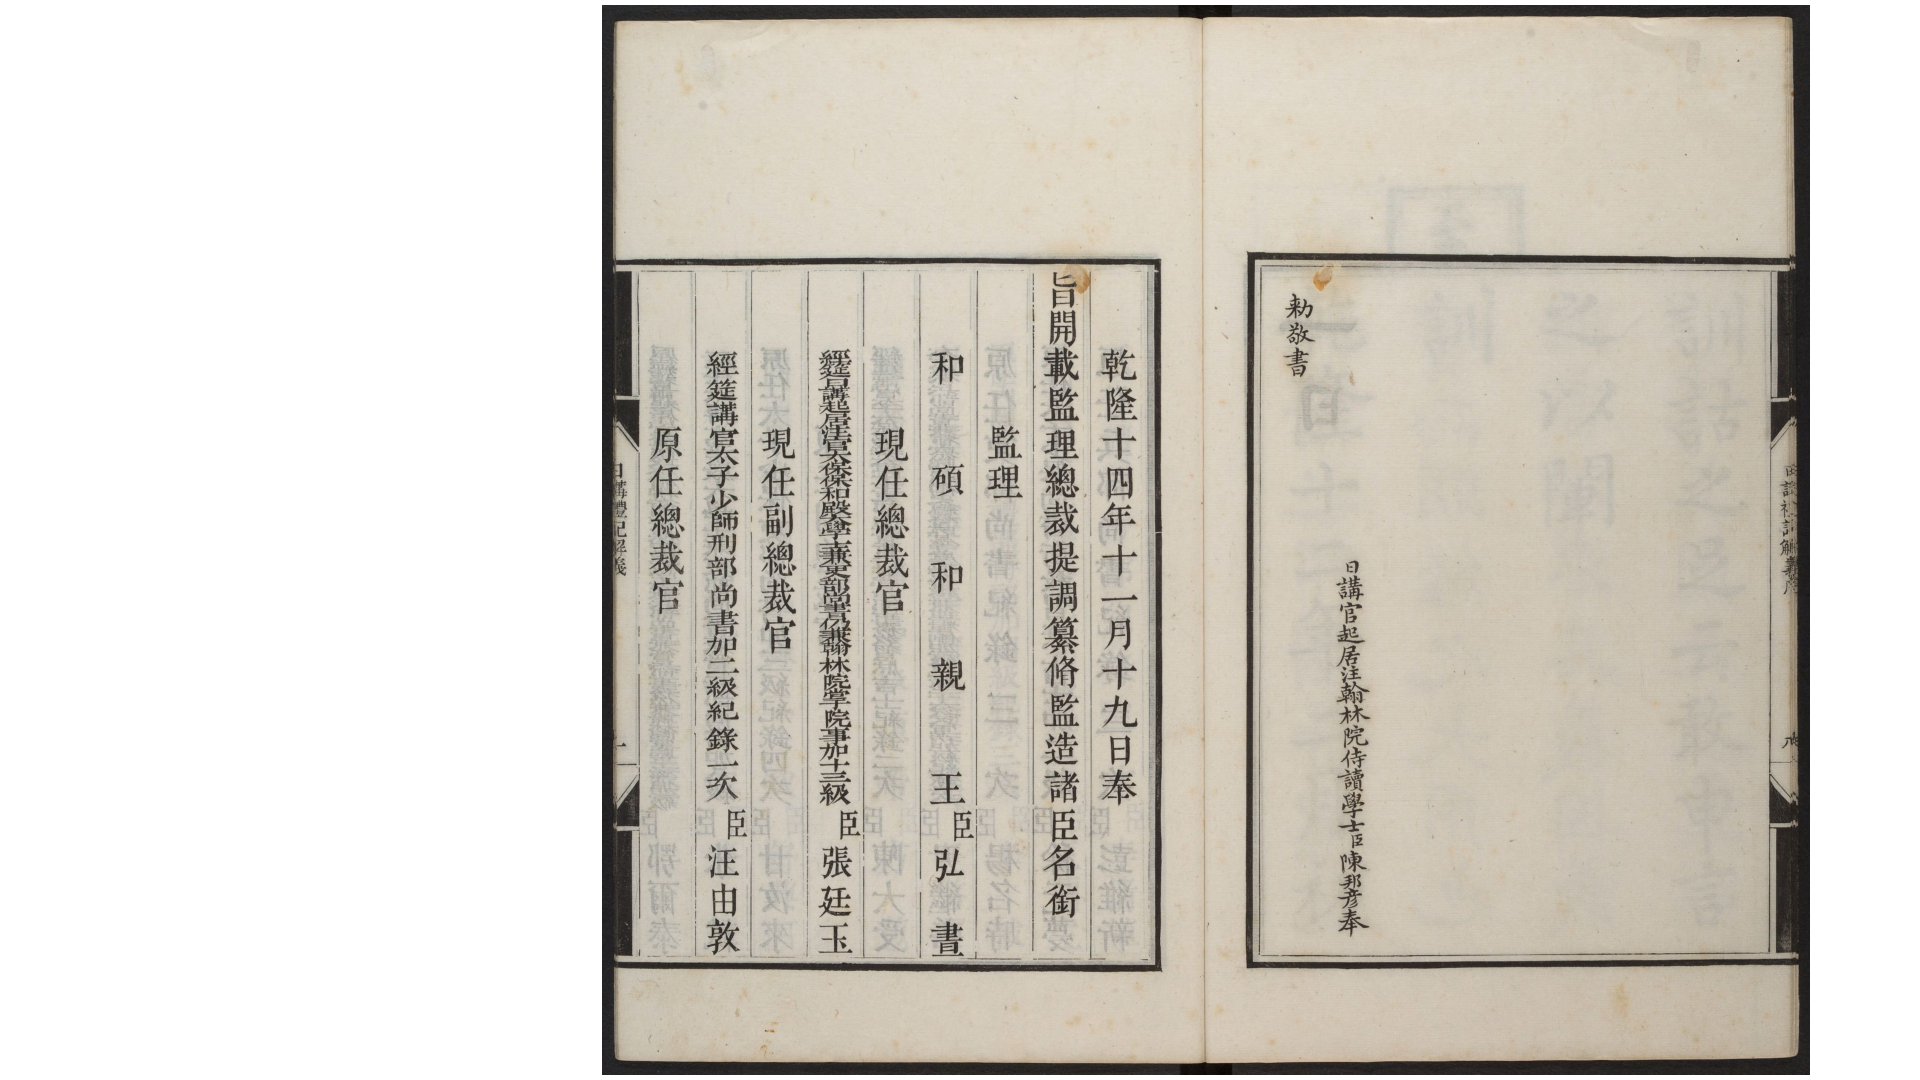 日講官起居注翰林院侍讀學士臣陳邦彦奉
勅敬書
乾隆十四年十一月十九日奉
旨開載監理總裁提調纂脩監造諸臣名銜
監理
和碩和親王臣弘晝
現任總裁官
經筵日講起居注官太保保和殿大學士兼吏部尚書仍兼翰林院掌院事加十三級臣張廷玉
現任副總裁官
經筵講官太子少師刑部尚書加二級紀錄一次臣汪由敦
原任總裁官
日講禮記解義